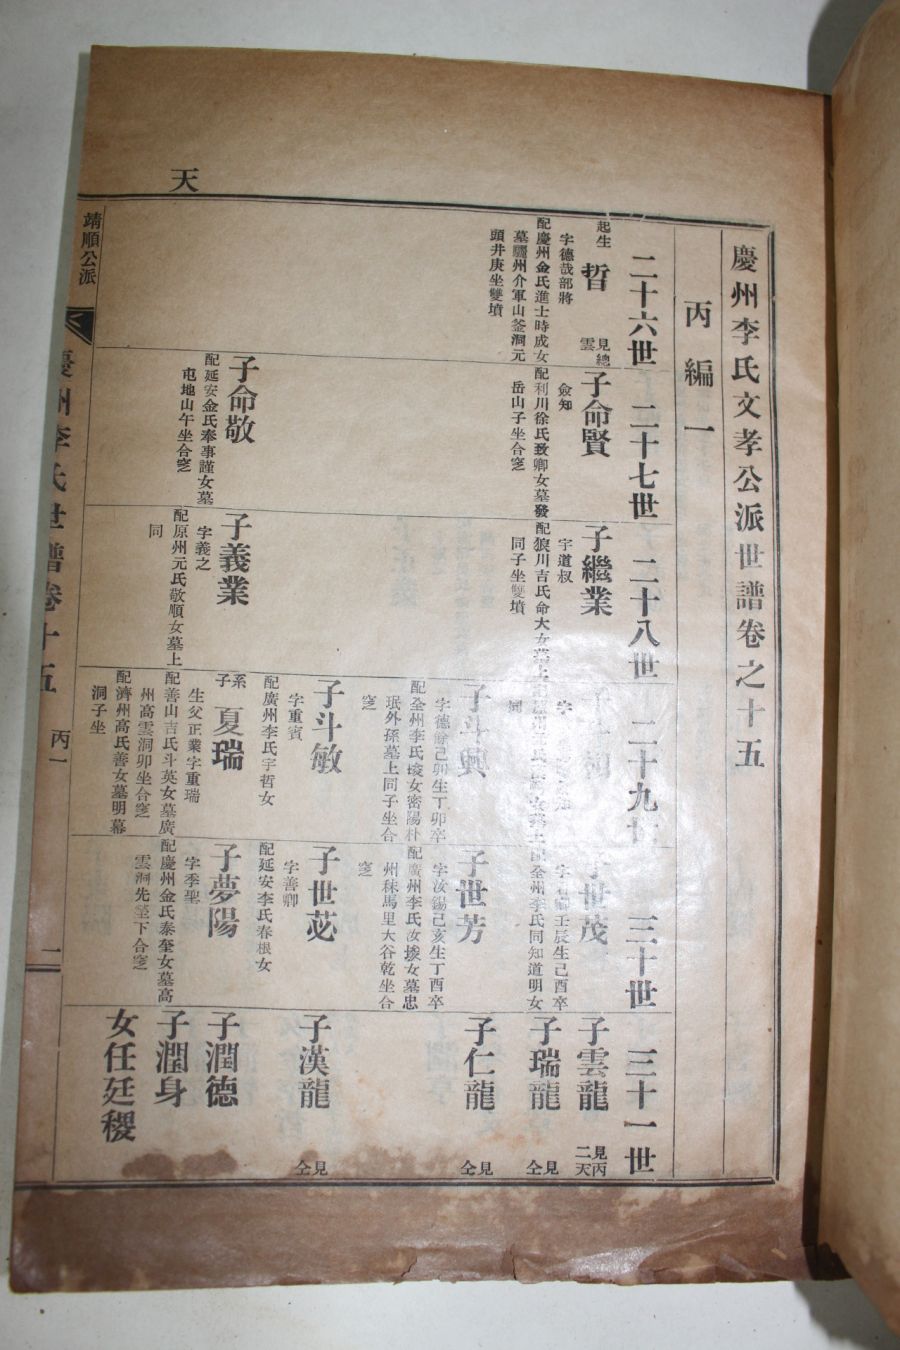 天
慶州李氏文孝公派世譜卷之十五
丙編一
二十六世
二十七世
二十八世
二十九世
三十世
三十一世
起生
哲
見總
雲
字德哉部將
配慶州金氏進士時成女
墓驪州介軍山釜洞元
頭井庚坐雙墳
子命賢
僉知
配利川徐氏致卿女墓發
岳山子坐合窆
子命敬
配延安金氏奉事謹女墓
屯地山午坐合窆
子繼業
字道叔
配狼川吉氏命大女墓上
同子坐雙墳
子義業
字義之
配原州元氏敬順女墓上
同
子斗興
字德翁己卯生丁卯卒
配全州李氏埈女密陽朴
珉外孫墓上同子坐合
窆
子斗敏
字重賓
配廣州李氏宇哲女
系子
夏瑞
生父正業字重瑞
配善山吉氏斗英女墓廣
州高雲洞卯坐合窆
配濟州高氏善女墓明幕
洞子坐
子世茂
壬辰生己酉卒
全州李氏同知道明女
子世芳
字汝錫己亥生丁酉卒
配廣州李氏汝埈女墓忠
州秣馬里大谷乾坐合
窆
子世苾
字善卿
配延安李氏春根女
子夢陽
字季聖
配慶州金氏泰奎女墓高
雲洞先塋下合窆
子雲龍
見丙
二天
子瑞龍
見仝
子仁龍
見仝
子漢龍
見仝
子潤德
子潤身
女任廷稷
靖順公派
慶州李氏世譜卷十五
丙一
一